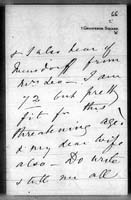 66
7 Grosvenor Square
& I also hear of
from
I am
72 but pretty
fit for this
threatening age
& my dear wife
also — Do write
& tell me all